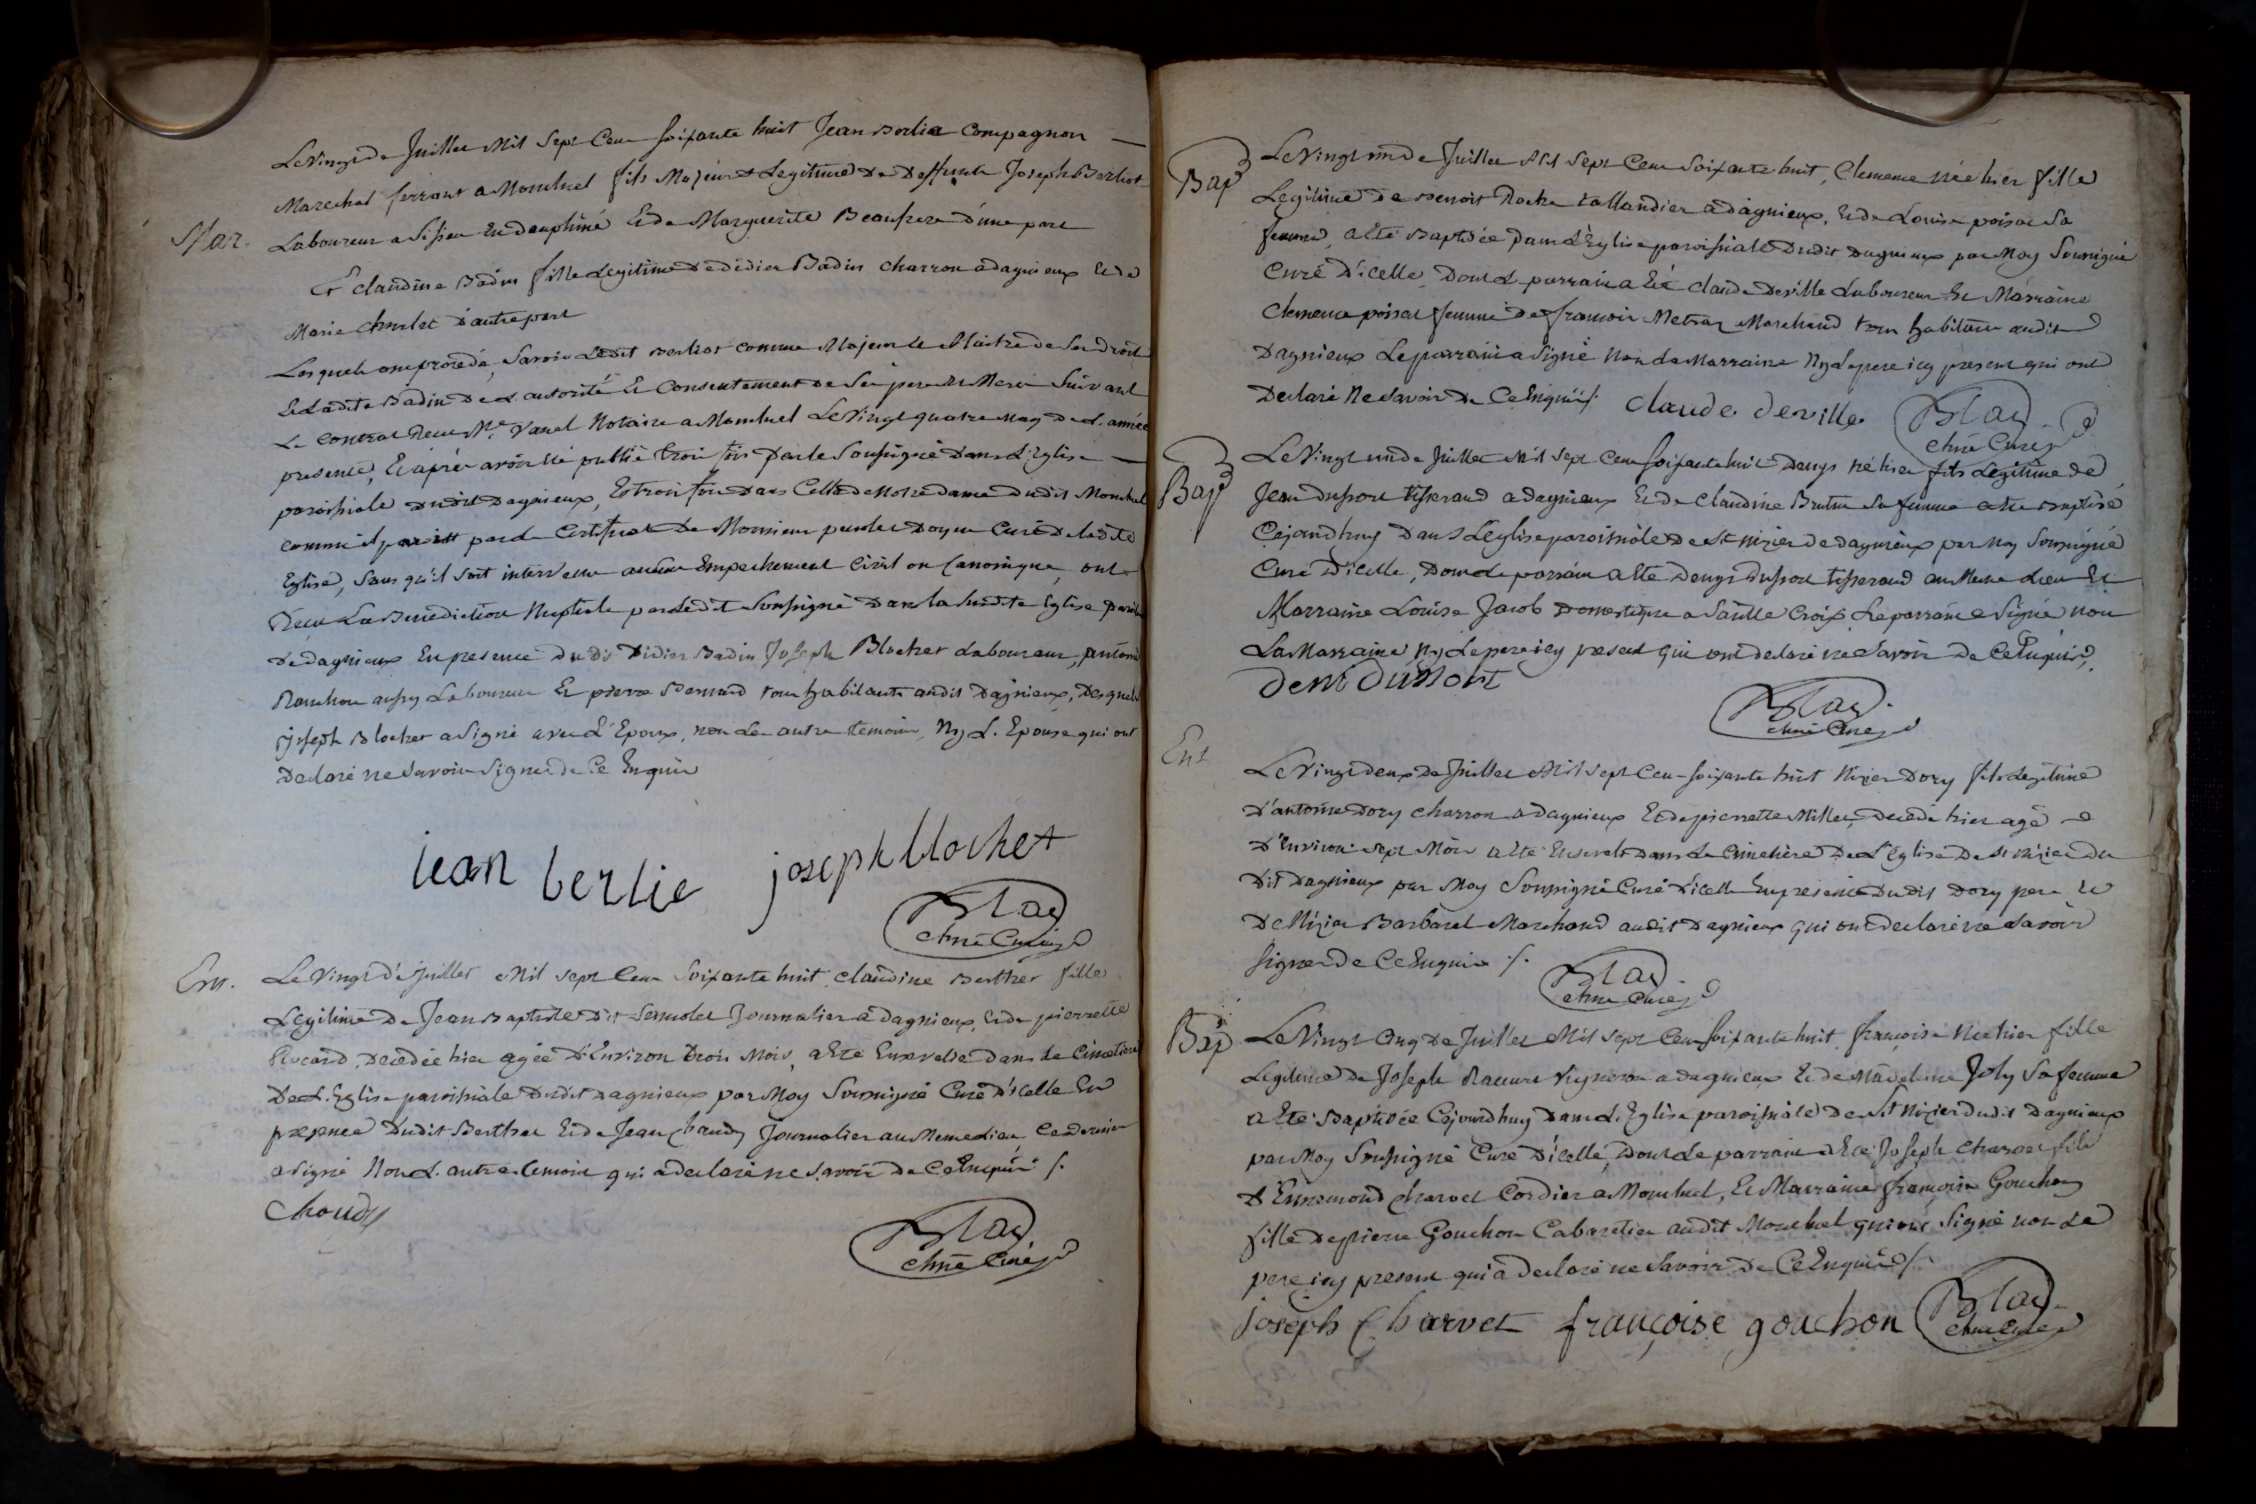 Mar.
Le Vingt de Juillet Mil Sept Cens Soixante huit Jean Berlia Compagnon
Marechal ferrant a Montluel fils Majeur & Legitime de Deffunts Joseph Berliat
Laboureur a en dauphiné Et de Marguerite Beaufrere d'une part
Et Claudine Badin fille Legitime de didier Badin charron a dagnieux Et de
Marie d'autre part
Lesquels ont procedé, Savoir Ledit Berliat comme Majeur et Maitre de Ses droits
Et Ladite Badin de L'autorité Et Consentement de Ses pere Et Mere Suivant
Le Contrat Receu Me. Vanel Notaire a Montluel Le Vingt quatre May de L'année
presente, Et aprés avoir été publié trois fois Par le Soussigné Dans L'Eglise
paroissiale dudit Dagnieux, Et trois fois Dans Celle de Notre dame dudit Montluel
comme il paroitt par le Certificat De Monsieur Doyen Curé De ladite
Eglise, Sans qu'il Soit intervenu aucun Empechement Civil ou Canonique, ont
Receu La Benediction Nuptiale par ledit Soussigné Dans la Susdite Eglise
de dagnieux En presence Dudit Didier Badin Joseph Blochet Laboureur, Antoine
aussy Laboureur Et pierre Bernard tous habitants audit Dagnieux, Desquels
joseph Blochet a Signé avec L'Epoux, non Les autres temoins, Ny L'Epouse qui ont
Declaré ne Savoir Signer de Ce Enquis
jean berlie joseph blochet
Blad
chne Curé
Ent.
Le Vingt de Juillet Mil Sept Cens Soixante huit claudine Berthet fille
Legitime De Jean Baptiste Dit Journalier a Dagnieux, Et de pierrette
Decedée hier agée d'Environ trois Mois, a Eté Ensevelie Dans Le Cimetiere
De L'Eglise paroissiale Dudit Dagnieux par Moy Soussigné Curé d'icelle En
presence Dudit Berthet Et de Jean Chaudy Journalier au Meme Lieu, Ce Dernier
a Signé Non L'autre temoin qui a declaré ne Savoir De Ce Enquis /.
Chaudy
Blad
chne Curé
Bap
Le Vingt un de Juillet Mil Sept Cens Soixante huit, Clemence née hier fille
Legitime de Benoit Roche taillandier a dagnieux, Et de Louise poisat Sa
femme, a Eté Baptisée Dans L'Eglise paroissiale Dudit Dagnieux par Moy Soussigné
Curé D'icelle, Dont Le parrain a Eté claude Deville Laboureur Et Marraine
Clemence poisat femme de francois Metras Marchand tous habitans audit
Dagnieux Le parrain a Signé Non La Marraine Ny Le pere icy present qui ont
Declaré Ne Savoir De Ce Enquis /.
claude deville
Blad
chne Curé
Bap
Le Vingt un de Juillet Mil Sept Cens Soixante huit Denys né hier fils Legitime de
Jean dussort tisserand a dagnieux Et De Claudine Sa femme a été Baptisé
Cejourdhuy Dans L'Eglise paroissiale De St Nizier de dagnieux par Moy Soussigné
Curé D'icelle, Dont Le parrain a Eté Denys Dussort tisserand au Meme Lieu Et
Marraine Louise Jacob Domestique a Sainte Croix Le parrain a Signé non
La Marraine Ny Le pere icy present Qui ont declaré ne Savoir De Ce Enquis
Deni duSSort
Blad
chne Curé
Ent
Le Vingt deux De Juillet Mil Sept Cens Soixante huit Nizier Dory fils Legitime
D'antoine Dory charron a Dagnieux Et de pierrette Millet, decedé hier agé
D'Environ Sept Mois a Eté Enseveli Dans Le Cimetiere De L'Eglise De St Nizier du
Dit Dagnieux par Moy Soussigné Curé d'icelle En presence Dudit Dory pere Et
De Nizier Barbaret Marchand audit Dagnieux Qui ont declaré ne Savoir
Signer De Ce Enquis /.
Blad
chne Curé
Bap
Le Vingt Cinq De Juillet Mil Sept Cens Soixante huit, françoise Née hier fille
Legitime De Joseph Vigneron a dagnieux Et de Madelaine Joly Sa femme
a Eté Baptisée Cejourdhuy Dans L'Eglise paroissiale De St Nizier dudit Dagnieux
par Moy Soussigné Curé D'icelle, Dont Le parrain a Eté Joseph Charvet fils
D'Ennemond Charvet Cordier a Montluel, Et Marraine françoise Gouchon
fille De pierre Gouchon Cabaretier audit Montluel qui ont Signé non Le
pere icy present qui a Declaré ne Savoir De Ce Enquis /.
joseph Charvet françoise gouchon
Blad
chne Curé